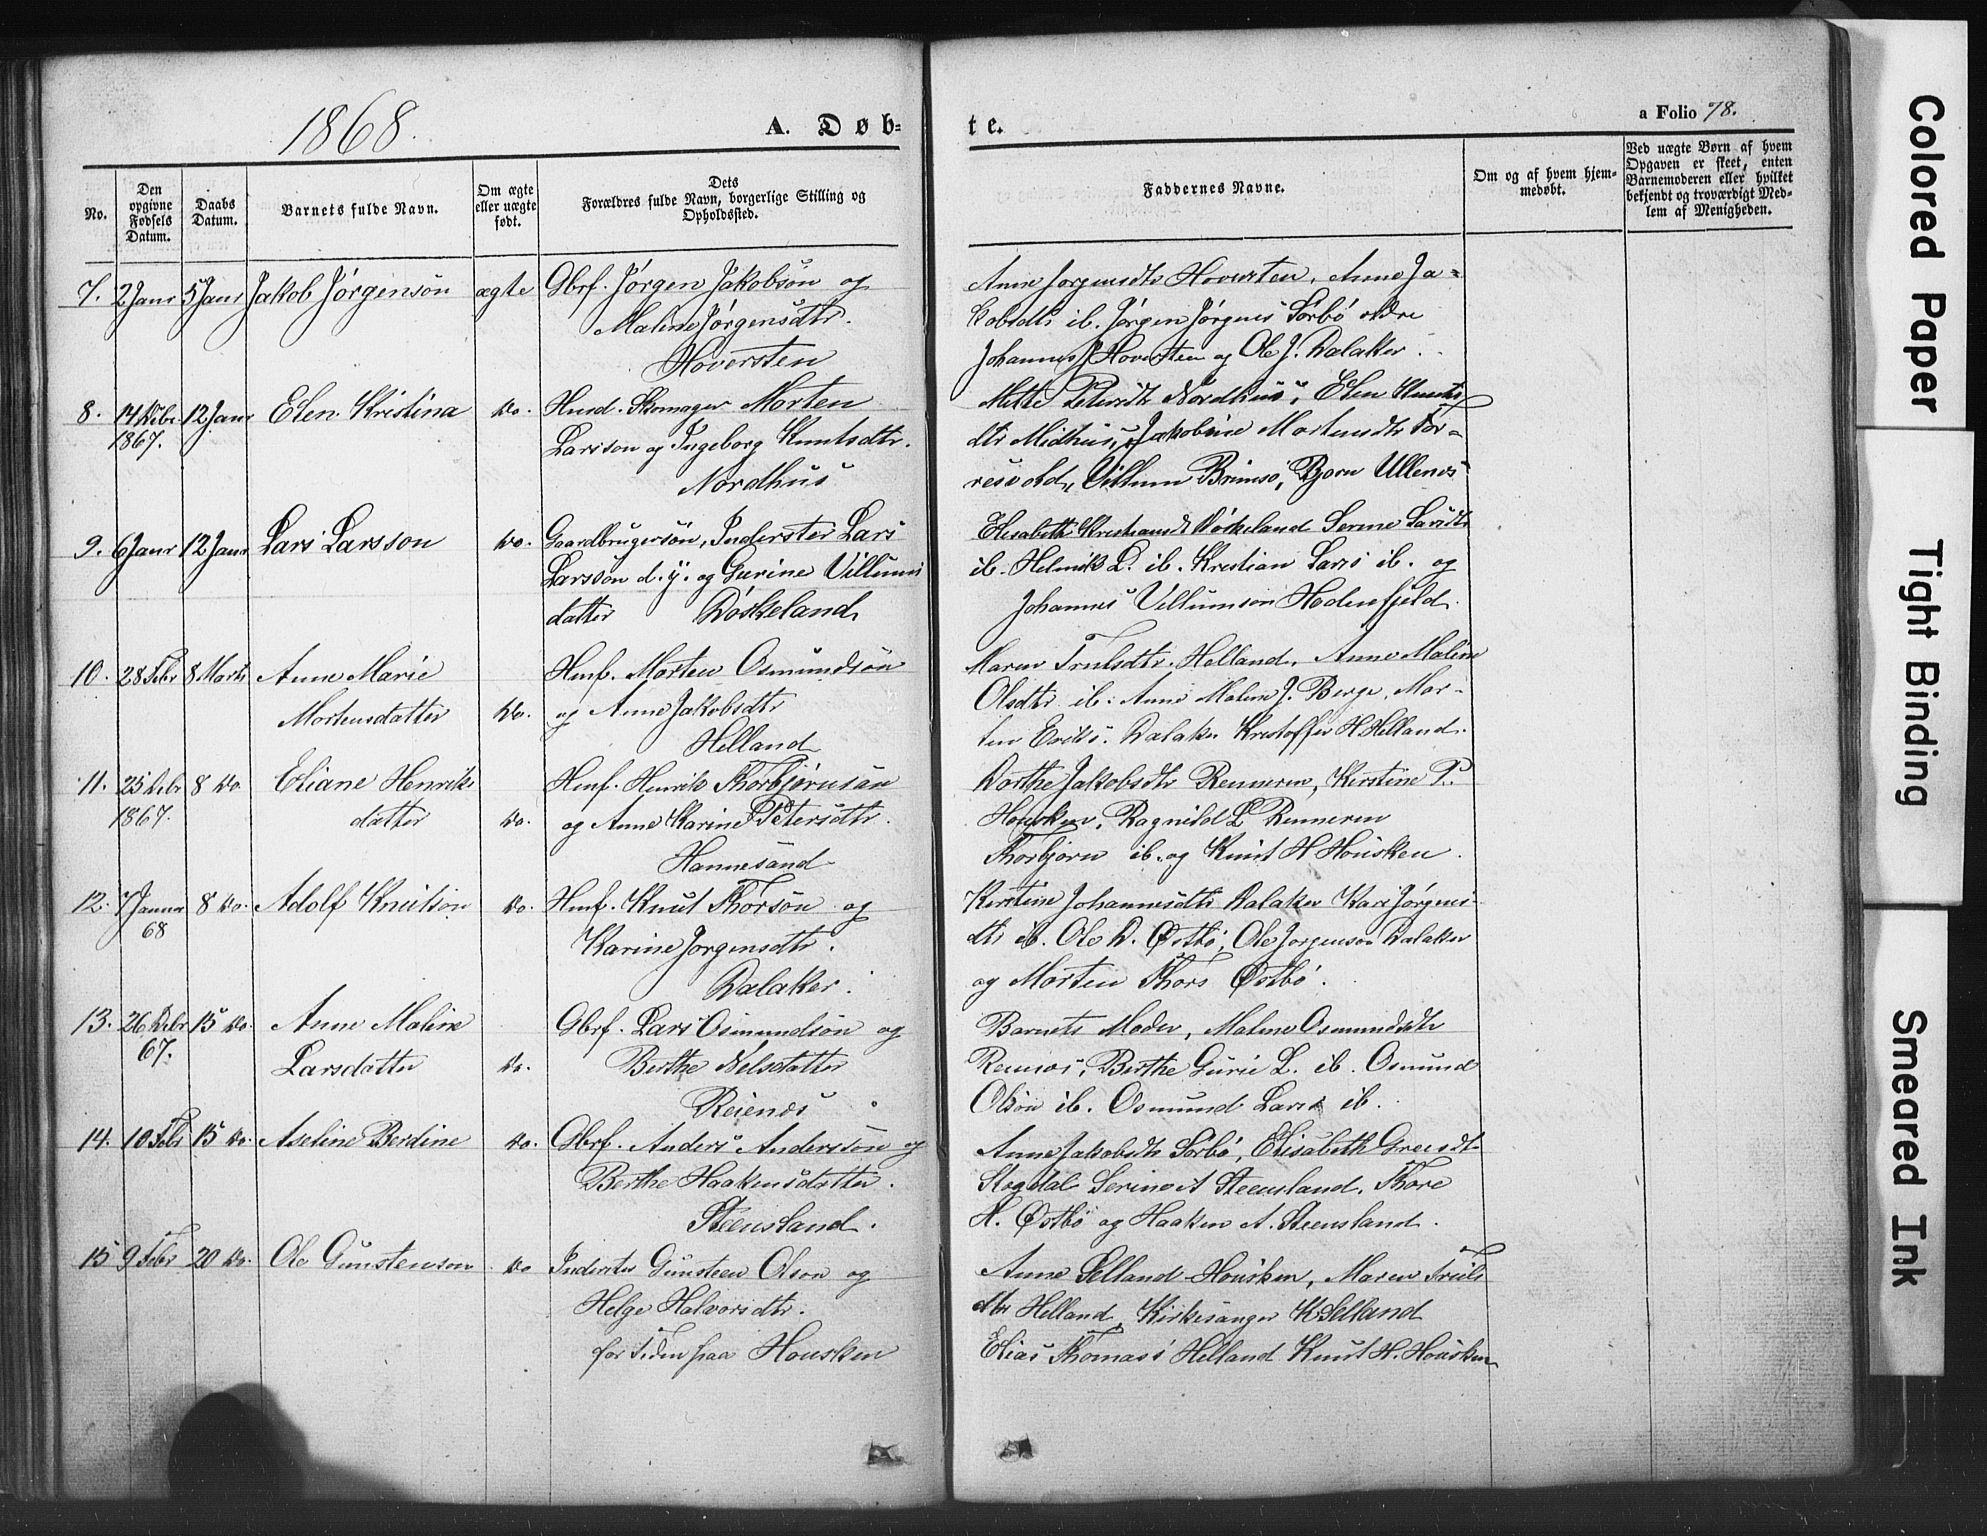 1868.
A. Døb=
te.
a Folio 78.
No.
Den opgivne Fødsels Datum.
Daabs Datum.
Barnets fulde Navn.
Om ægte eller uægte født.
Dets
Forældres fulde Navn, borgerlige Stilling og Opholdssted.
Faddernes Navne.
Om og af hvem hjem-
medøbt.
Ved uægte Børn af hvem
Opgaven er skeet, enten
Barnemoderen eller hvilket
bekjendt og troværdigt Med-
lem af Menigheden.
7. 2 Janr 5 Janr Jakob Jørgensøn ægte Gbrf. Jørgen Jakobsøn og
Maline Jørgensdtr.
Hoversten
Anne Jørgensdtr Hoversten, Anne Ja=
kobsdtr ib. Jørgen Jørgens Sørbø ældre
Johannes J Hoversten og Ole J. Dalaker.
8. 14 Debr 12 Janr Elen Kristina do. Husd. Skomager Morten
1867. Larsson og Ingeborg Knutsdtr.
Nordhus
Mette Petersdtr Nordhus, Elen Knuts
dtr Midhus, Jakobine Mortensdtr Vor=
resvold, Villum Brimsø, Bjørn Ullenes
9. 6 Janr 12 Janr Lars Larsson do. Gaardbrugersøn, Inderster Lars
Larsson d.y. og Gurine Villums
datter Døskeland
Elisabeth Kristiansd Døskeland Serine Larsdtr
ib. Helmik L. ib. Kristian Lars ib. og
Johannes Villumson Hodnefjeld.
10. 28 Febr 8 Marts Anne Marie Husf. Morten Osmundsøn
Mortensdatter do. og Anne Jakobsdtr
Helland
Maren Trulsdtr. Helland, Anne Maline
Olsdtr ib. Anne Maline J. Berge, Mor-
ten Eriks. Dalaker Kristoffer H Helland.
11. 25 Debr 8 do. Eliane Henriks Husf. Henrik Thorbjørnsøn
1867. datter do. og Anne Karine Petersdtr.
Hannesand
Dorthe Jakobsdtr Renneren, Kirstine P.
Housken, Ragnild L Renneren
Thorbjørn ib. og Knut H Housken.
12. 7 Januar 8 do. Adolf Knutson do. Husf. Knut Thorsøn og
68 Karine Jørgensdtr.
Dalaker.
Kirstine Johannesdtr Dalaker Kari Jørgens-
dtr ib. Ole D. Østbø, Ole Jørgenson Dalaker
og Morten Thors Østbø.
13. 26 Debr 15 do. Anne Maline Gbrf. Lars Osmundsøn og
67. Larsdatter do. Berthe Nelsdatter
Reienes
Barnets Moder, Maline Osmundsdtr
Berthe Gurie L. ib. Osmund
Olsøn ib. Osmund Lars ib.
14. 10 Febr 15 do. Aseline Berdine do. Gbrf. Anders Andersson og
Berthe Haakensdatter.
Steensland.
Anne Jakobsdtr Sørbø, Elisabeth
Serine A Steensland, Thore
H. Østbø og Haaken A. Steensland.
15 9 Febr 20 do. Ole Gunstenson do Inderster Gunsteen Olson og
Helge Halvorsdtr.
for Tiden paa Housken
Anne Selland Housken, Maren Truls
dtr Helland, Kirkesanger K Selland
Elias Thomass Helland Knut H. Housken
Colored Paper
Tight Binding
Smeared Ink